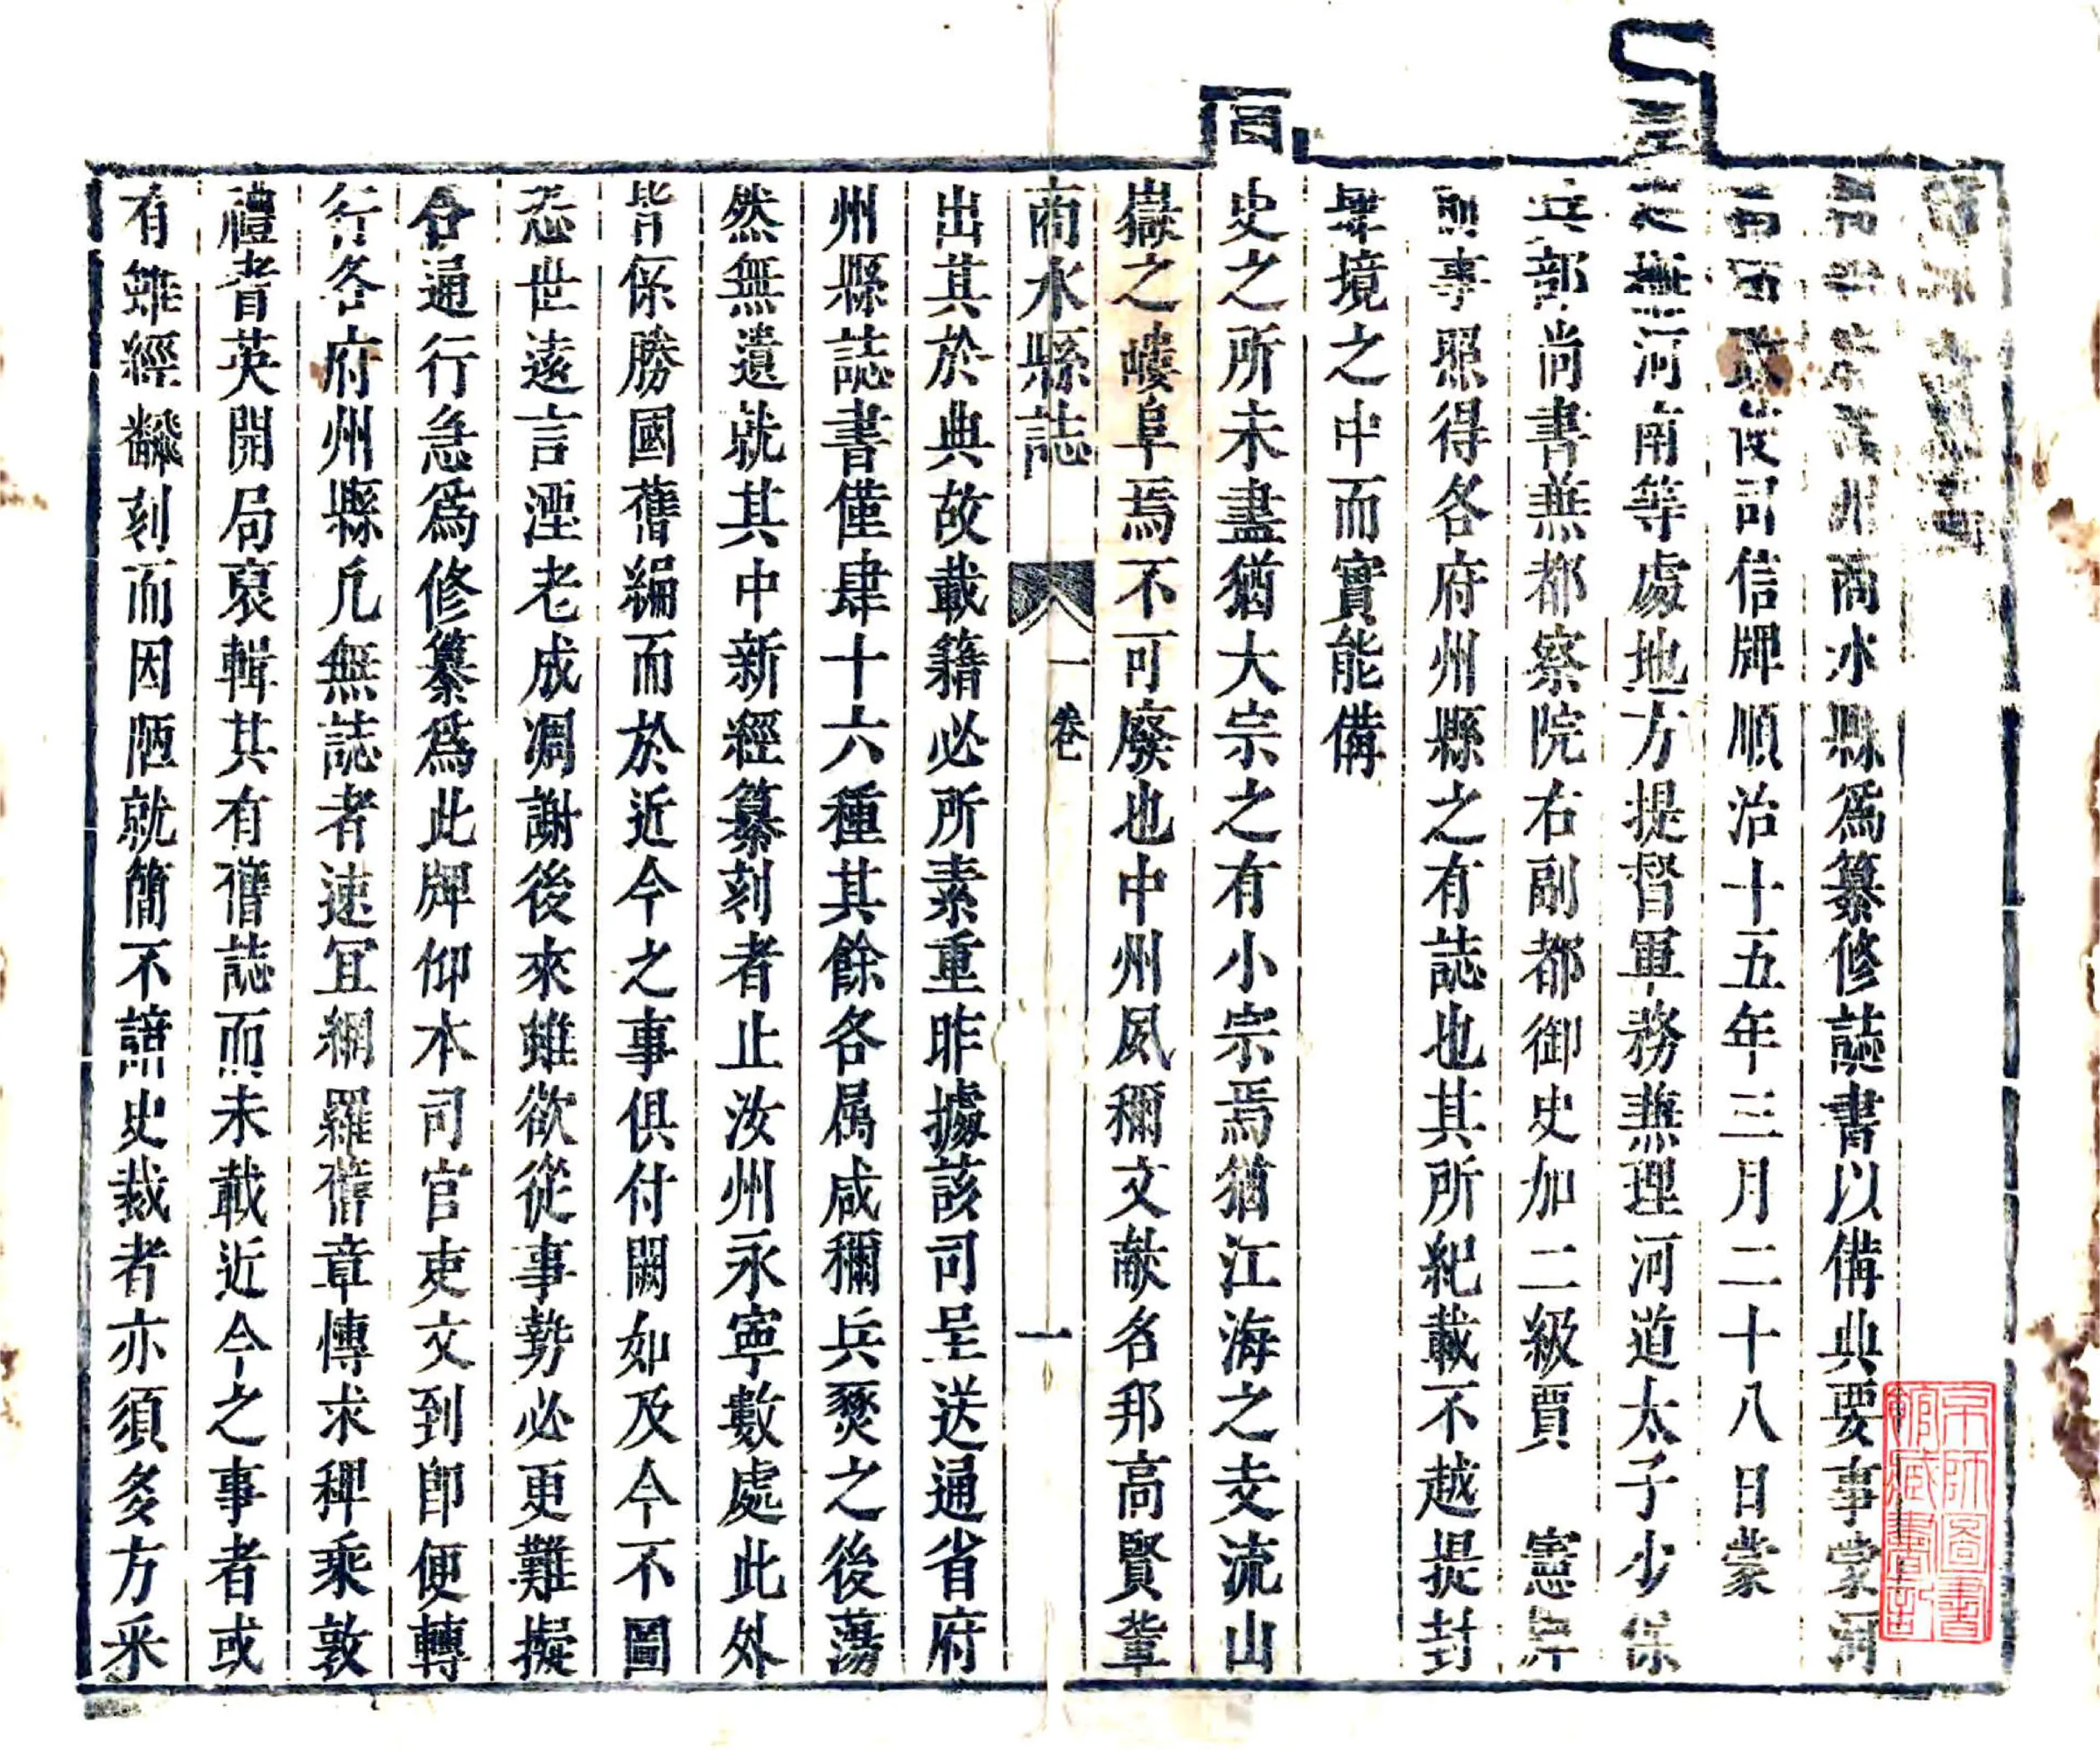 商水縣爲纂修誌書以備典要事蒙河
司信牌順治十五年三月二十八日蒙
撫河南等處地方提督軍務兼理河道太子少保
兵部尚書兼都察院右副都御史加二級賈 憲牌
前事照得各府州縣之有誌也其所紀載不越提封
肆境之中而實能備
國史之所未盡猶大宗之有小宗焉猶江海之支流山
嶽之嶁阜焉不可廢也中州夙稱文獻名邦高賢輩
商水縣誌 一卷 一
出其於典故載籍必所素重昨據該司呈送通省府
州縣誌書僅肆十六種其餘各属咸稱兵燹之後蕩
然無遺就其中新經纂刻者止汝州永寧數處此外
皆係勝國舊編而於近今之事俱付闕如及今不圖
恐世遠言湮老成凋謝後來雖欲從事勢必更難擬
合通行急爲修纂爲此牌仰本司官吏文到即便轉
行各府州縣凡無誌者速宜網羅舊章慱求稗乘敦
禮耆英開局裒輯其有舊誌而未載近今之事者或
有雖經翻刻而因陋就簡不諳史裁者亦須多方采
京師圖書
館藏書記